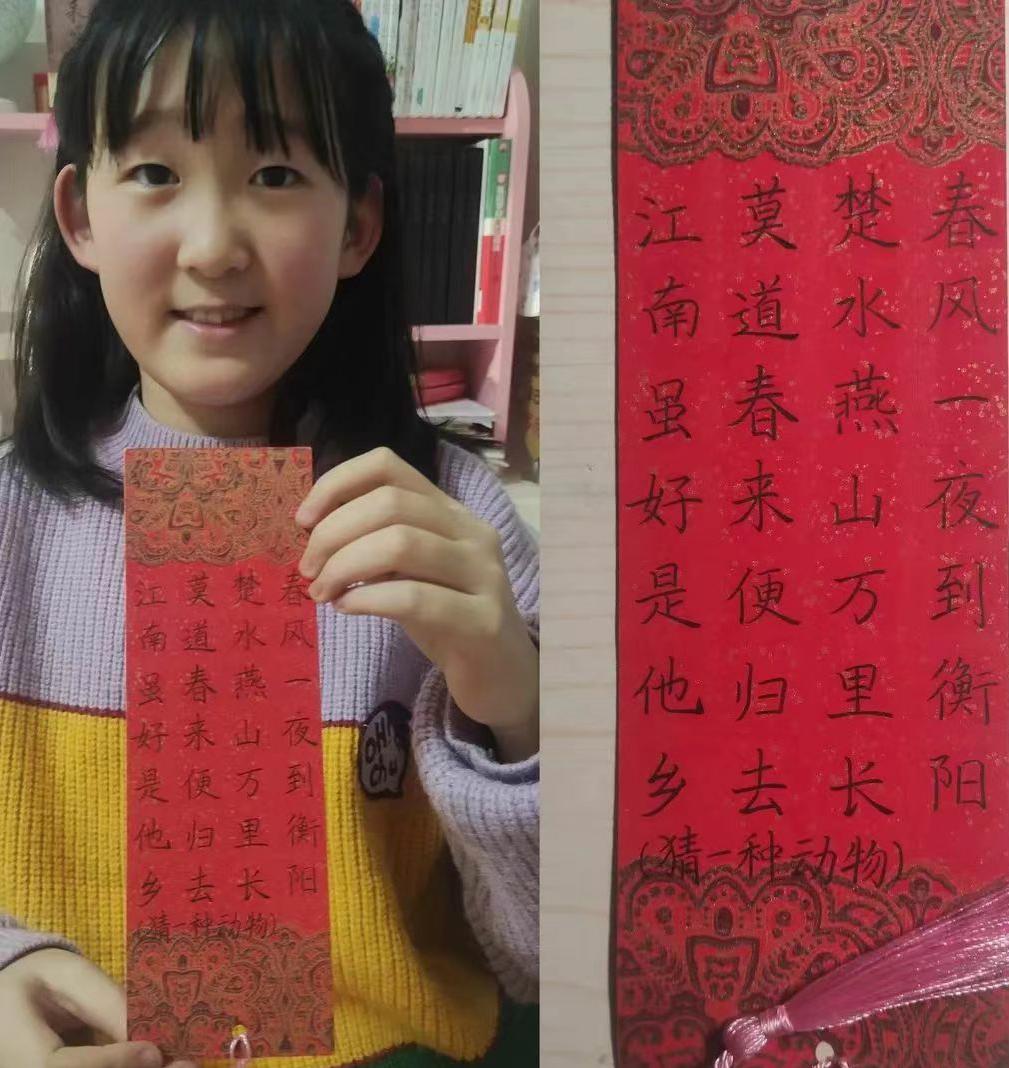 春风一夜到衡阳
楚水燕山万里长
莫道春来便归去
江南虽好是他乡
(猜一种动物)
春风一夜到衡阳
楚水燕山万里长
莫道春来便归去
江南虽好是他乡
(猜一种动物)